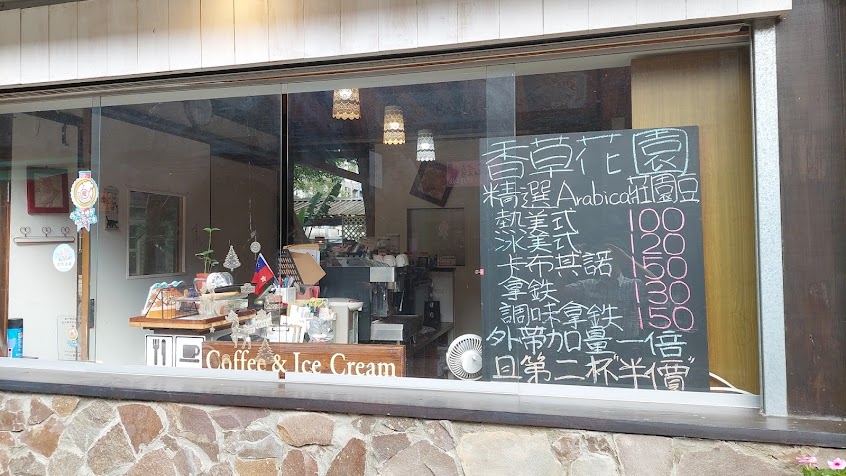 香草花園
精選Arabica莊園豆
熱美式 100
冰美式 120
卡布其諾 150
拿鉄 130
調味拿鉄 150
外帶加量一倍
且第二杯"半價"
Coffee & Ice Cream